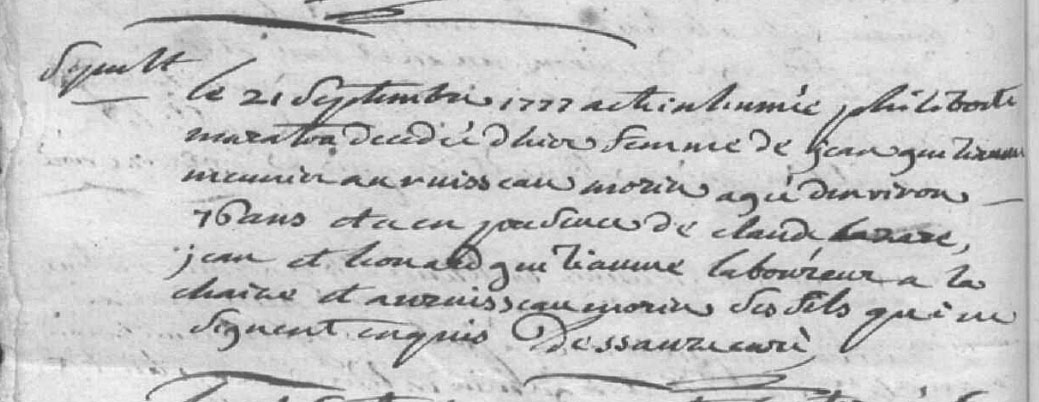 Sepult
le 21 Septembre 1777 a eté inhumée philiberte
decedée d'hier femme de jean guillaume
meunier au ruisseau morin agée denviron
76 ans et ce en presence de claude lazare,
jean et leonard guillaume laboureur a la
chaine et au ruisseau morin ses fils qui ne
signent enquis Dessauze curé